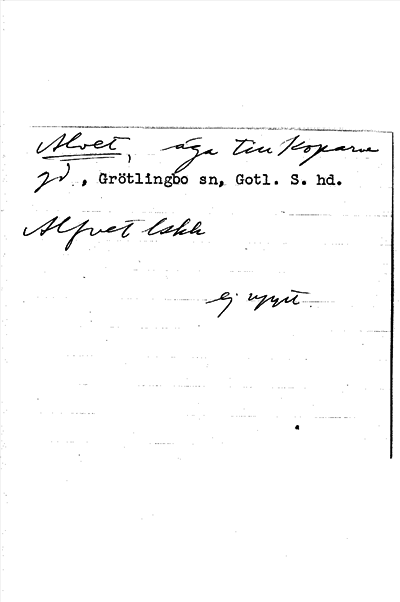 Alvet, äga till Koparve
gd., Grötlingbo sn, Gotl. S. hd.
Alfvet lskk
ej uppt